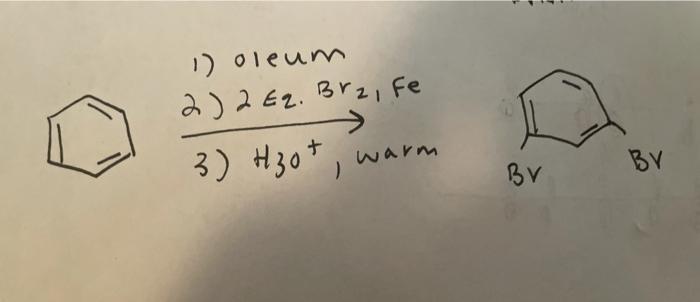 1) oleum
2) 2 Eq. Br2, Fe
3) H3O+, warm
Br
Br